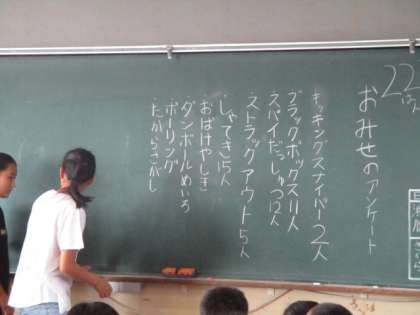 22
おみせのアンケート
キッキングスナイパー2人
ブラックボックス11人
スパイだっしゅつ12人
ストラックアウト5人
しゃてき15人
おばけやしき
ダンボールめいろ
ボーリング
たからさがし